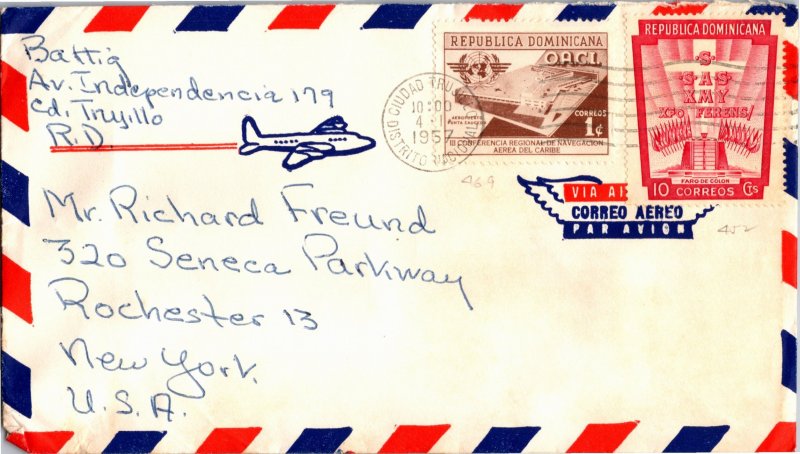 Battig
Av. Independencia 179
Cd. Trujillo
R.D.
REPUBLICA DOMINICANA
OACI.
AEROPUERTO
PUNTA CAUCEDO
CORREOS
1¢
III CONFERENCIA REGIONAL DE NAVEGACION
AEREA DEL CARIBE
REPUBLICA DOMINICANA
·S·
S·A·S
XMY
XPO FERENS/
FARO DE COLON
10 CORREOS Cts
CIUDAD TRUJ
10:00
4 1
1957
DISTRITO NACIONAL
469
452
VIA AI
CORREO AEREO
PAR AVION
Mr. Richard Freund
320 Seneca Parkway
Rochester 13
New York.
U.S.A.